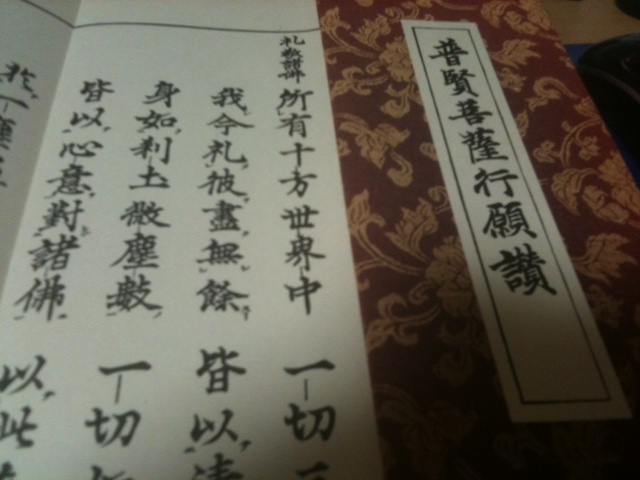 普賢菩薩行願讃
礼敬諸佛
所有十方世界中 一切三
我今礼彼盡無餘 皆以清
身如刹土微塵數 一切如
皆以心意對諸佛 以此
於一塵